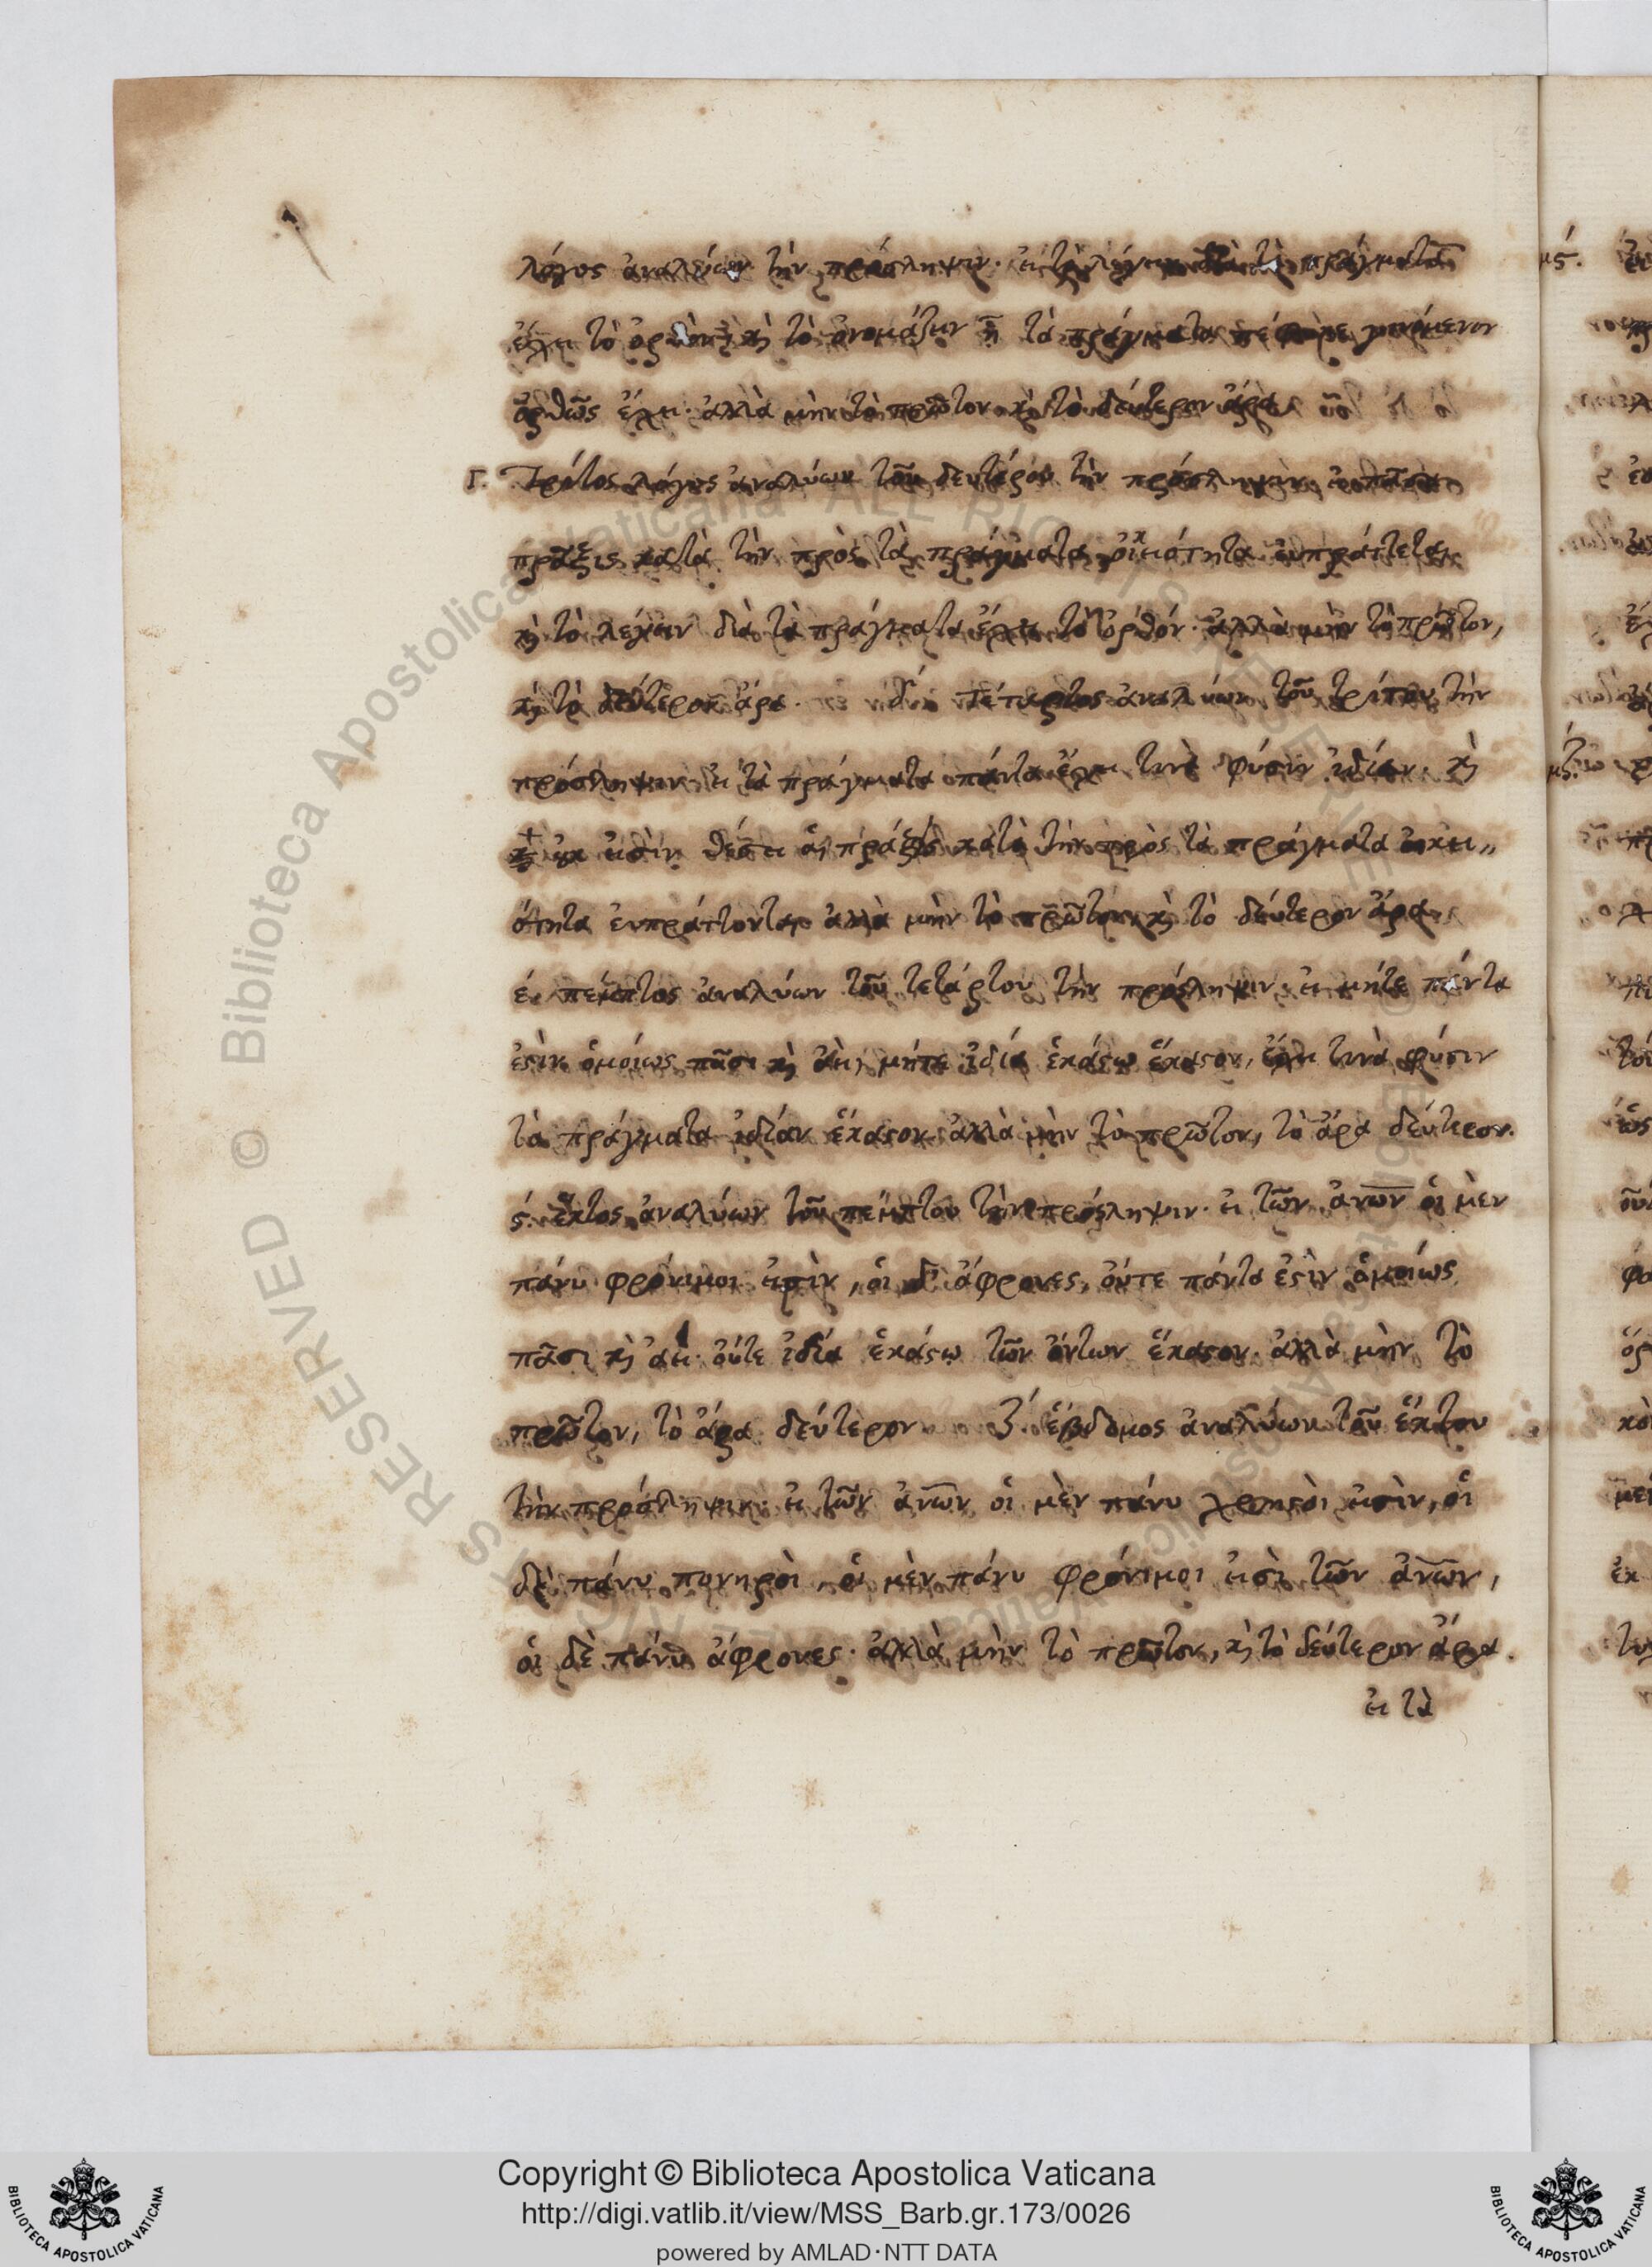 λόγος ἀναλύων τὴν πρόσληψιν· εἰ τὸ λέγειν διὰ τὰ πράγματα
ἔχει τὸ ὀρθὸν, καὶ τὸ ὀνομάζειν ᾗ τὰ πράγματα πέφυκε γινόμενον
ὀρθῶς ἔχει· ἀλλὰ μὴν τὸ πρῶτον καὶ τὸ δεύτερον ἄρα
Γ. Τρίτος λόγος ἀναλύων τοῦ δευτέρου τὴν πρόσληψιν, εἰ πᾶσα
πρᾶξις κατὰ τὴν πρὸς τὰ πράγματα οἰκειότητα εὐπράττεται
καὶ τὸ λέγειν διὰ τὰ πράγματα ἔχει τὸ ὀρθόν· ἀλλὰ μὴν τὸ πρῶτον,
καὶ τὸ δεύτερον ἄρα. δ´ τέταρτος ἀναλύων τοῦ τρίτου τὴν
πρόσληψιν· εἰ τὰ πράγματα πάντα ἔχει τινὰ φύσιν ἰδίαν καὶ
οὐκ εἰσὶν θέσει αἱ πράξεις κατὰ τὴν πρὸς τὰ πράγματα οἰκει〃
ότητα εὐπράττονται· ἀλλὰ μὴν τὸ πρῶτον καὶ τὸ δεύτερον ἄρα
ε´. πέμπτος ἀναλύων τοῦ τετάρτου τὴν πρόσληψιν· εἰ μήτε πάντα
ἐστὶν ὁμοίως πᾶσι καὶ ἀεὶ, μήτε ἰδίᾳ ἑκάστῳ ἕκαστον, ἔχει τινὰ φύσιν
τὰ πράγματα ἰδίαν ἕκαστον· ἀλλὰ μὴν τὸ πρῶτον, τὸ ἄρα δεύτερον.
ς´. ἕκτος ἀναλύων τοῦ πέμπτου τὴν πρόσληψιν· εἰ τῶν ἀνων οἱ μὲν
πάνυ φρόνιμοι εἰσὶν, οἱ δ' ἄφρονες, οὔτε πάντα ἐστὶν ὁμοίως
πᾶσι καὶ ἀεὶ· οὔτε ἰδίᾳ ἑκάστῳ τῶν ὄντων ἕκαστον· ἀλλὰ μὴν τὸ
πρῶτον, τὸ ἄρα δεύτερον ζ´. ἕβδομος ἀναλύων τοῦ ἕκτου
τὴν πρόσληψιν· εἰ τῶν ἀνων οἱ μὲν πάνυ χρηστοὶ εἰσὶν, οἱ
δὲ πάνυ πονηροὶ, οἱ μὲν πάνυ φρόνιμοι εἰσὶ τῶν ἀνων,
οἱ δὲ πάνυ ἄφρονες· ἀλλὰ μὴν τὸ πρῶτον, καὶ τὸ δεύτερον ἄρα.
εἰ τὰ
μς´.
μζ´.
Copyright © Biblioteca Apostolica Vaticana
http://digi.vatlib.it/view/MSS_Barb.gr.173/0026
powered by AMLAD·NTT DATA
BIBLIOTECA APOSTOLICA VATICANA
BIBLIOTECA APOSTOLICA VATICANA
© Biblioteca Apostolica Vaticana ALL RIGHTS RESERVED